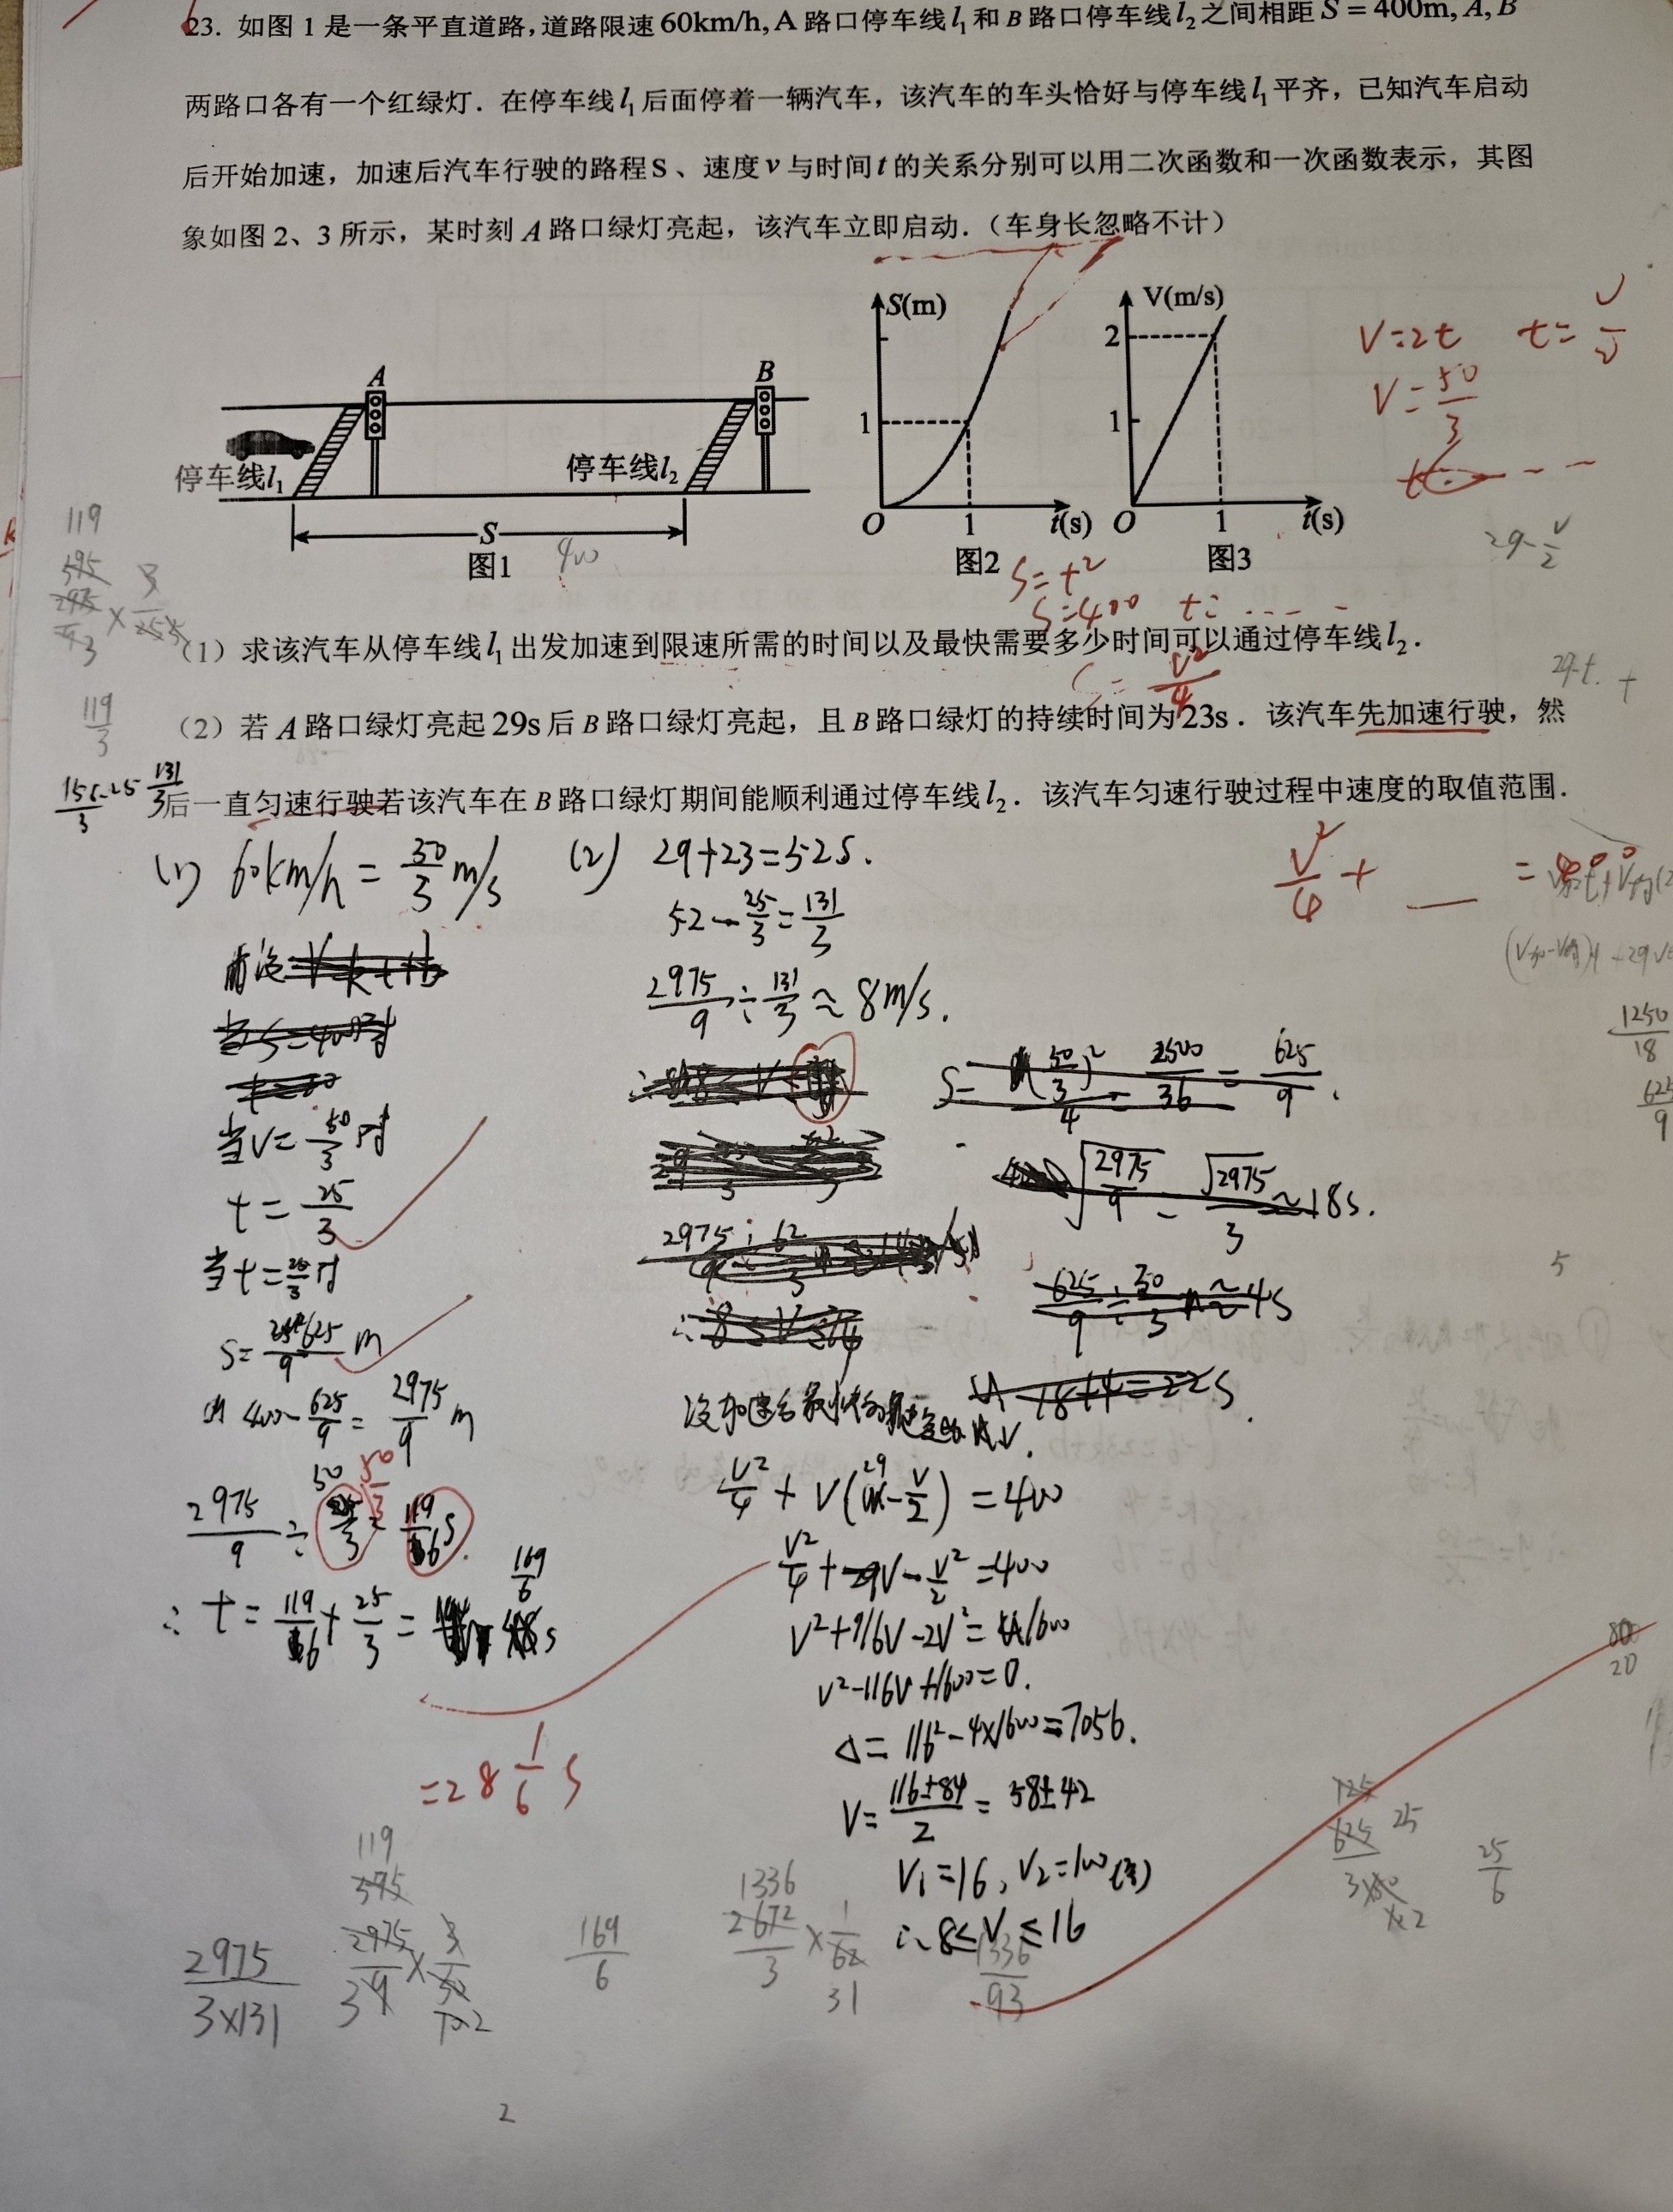 23. 如图 1 是一条平直道路，道路限速 60km/h, A 路口停车线 l₁ 和 B 路口停车线 l₂ 之间相距 S = 400m, A, B
两路口各有一个红绿灯．在停车线 l₁ 后面停着一辆汽车，该汽车的车头恰好与停车线 l₁ 平齐，已知汽车启动
后开始加速，加速后汽车行驶的路程 S 、速度 v 与时间 t 的关系分别可以用二次函数和一次函数表示，其图
象如图 2、3 所示，某时刻 A 路口绿灯亮起，该汽车立即启动．（车身长忽略不计）
A
B
停车线l₁
停车线l₂
S
400
图1
S(m)
1
O
1
t(s)
图2
V(m/s)
2
1
O
1
t(s)
图3
V=2t t=v/2
V=50/3
29-v/2
S=t²
S=400 t=
S=v²/4
119
119/3
（1）求该汽车从停车线 l₁ 出发加速到限速所需的时间以及最快需要多少时间可以通过停车线 l₂．
（2）若 A 路口绿灯亮起 29s 后 B 路口绿灯亮起，且 B 路口绿灯的持续时间为 23s．该汽车先加速行驶，然
后一直匀速行驶若该汽车在 B 路口绿灯期间能顺利通过停车线 l₂．该汽车匀速行驶过程中速度的取值范围．
(1) 60km/h = 50/3 m/s
当V=50/3时
t=25/3
当t=25/3时
S=625/9 m
400-625/9=2975/9 m
2975/9÷50/3=119/6 s.
∴ t=119/6+25/3=169/6 s
=28 1/6 s
(2) 29+23=52s.
52-25/3=131/3
2975/9÷131/3≈8m/s.
v²/4+v(29-v/2)=400
v²/4+29v-v²/2=400
v²+116v-2v²=1600
v²-116v+1600=0.
△=116²-4×1600=7056.
V=(116±84)/2=58±42
V₁=16, V₂=100(舍)
∴8≤V≤16
v²/4+
1250/18
625/9
5
80
20
25/6
119
2975/(3×131)
169/6
1336
1336/93
2